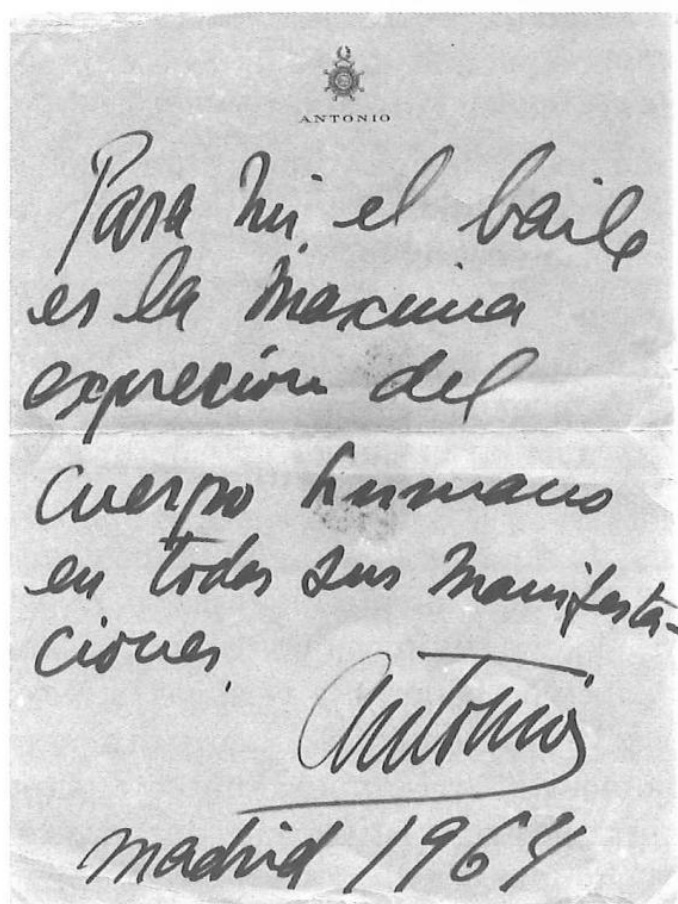 ANTONIO
Para mi el baile
es la maxima
expreción del
cuerpo humano
en todas sus manifesta-
ciones.
Antonio
madrid 1964